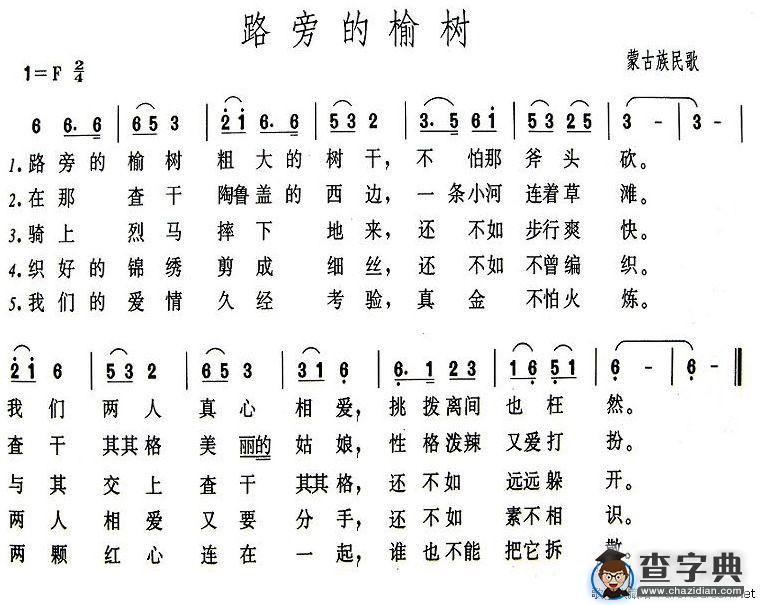 路旁的榆树
1=F 2/4
蒙古族民歌
6 6. 6 | 6 5 3 | 2 1 6. 6 | 5 3 2 | 3. 5 6 1 | 5 3 2 5 | 3 - | 3 - |
1.路旁的榆树粗大的树干,不怕那斧头砍。
2.在那查干陶鲁盖的西边,一条小河连着草滩。
3.骑上烈马摔下地来,还不如步行爽快。
4.织好的锦绣剪成细丝,还不如不曾编织。
5.我们的爱情久经考验,真金不怕火炼。
2 1 6 | 5 3 2 | 6 5 3 | 3 1 6 | 6. 1 2 3 | 1 6 5 1 | 6 - | 6 - ‖
我们两人真心相爱,挑拨离间也枉然。
查干其其格美丽的姑娘,性格泼辣又爱打扮。
与其交上查干其其格,还不如远远躲开。
两人相爱又要分手,还不如素不相识。
两颗红心连在一起,谁也不能把它拆散
查字典
www.chazidian.com